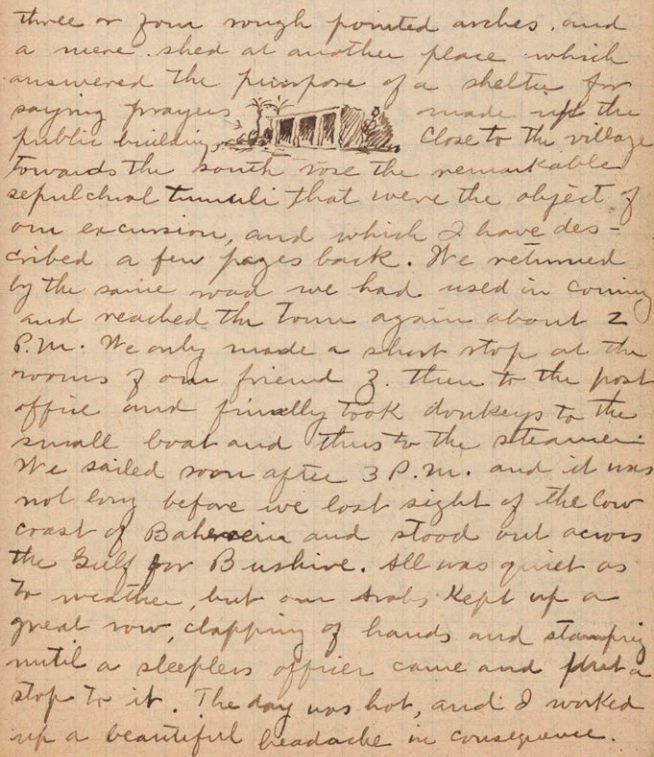 three or four rough pointed arches, and
a mere shed at another place which
answered the purpose of a shelter for
saying prayers made up the
public building. Close to the village
towards the south rose the remarkable
sepulchral tumuli that were the object of
our excursion, and which I have des-
cribed a few pages back. We returned
by the same road we had used in coming
and reached the town again about 2
P.M. We only made a short stop at the
rooms of our friend Z. then to the post
office and finally took donkeys to the
small boat and thus to the steamer.
We sailed soon after 3 P.M. and it was
not long before we lost sight of the low
coast of Bahrein and stood out across
the Gulf for Bushire. All was quiet as
to weather, but our Arabs kept up a
great row, clapping of hands and stamping
until a sleepless officer came and put a
stop to it. The day was hot, and I worked
up a beautiful headache in consequence.